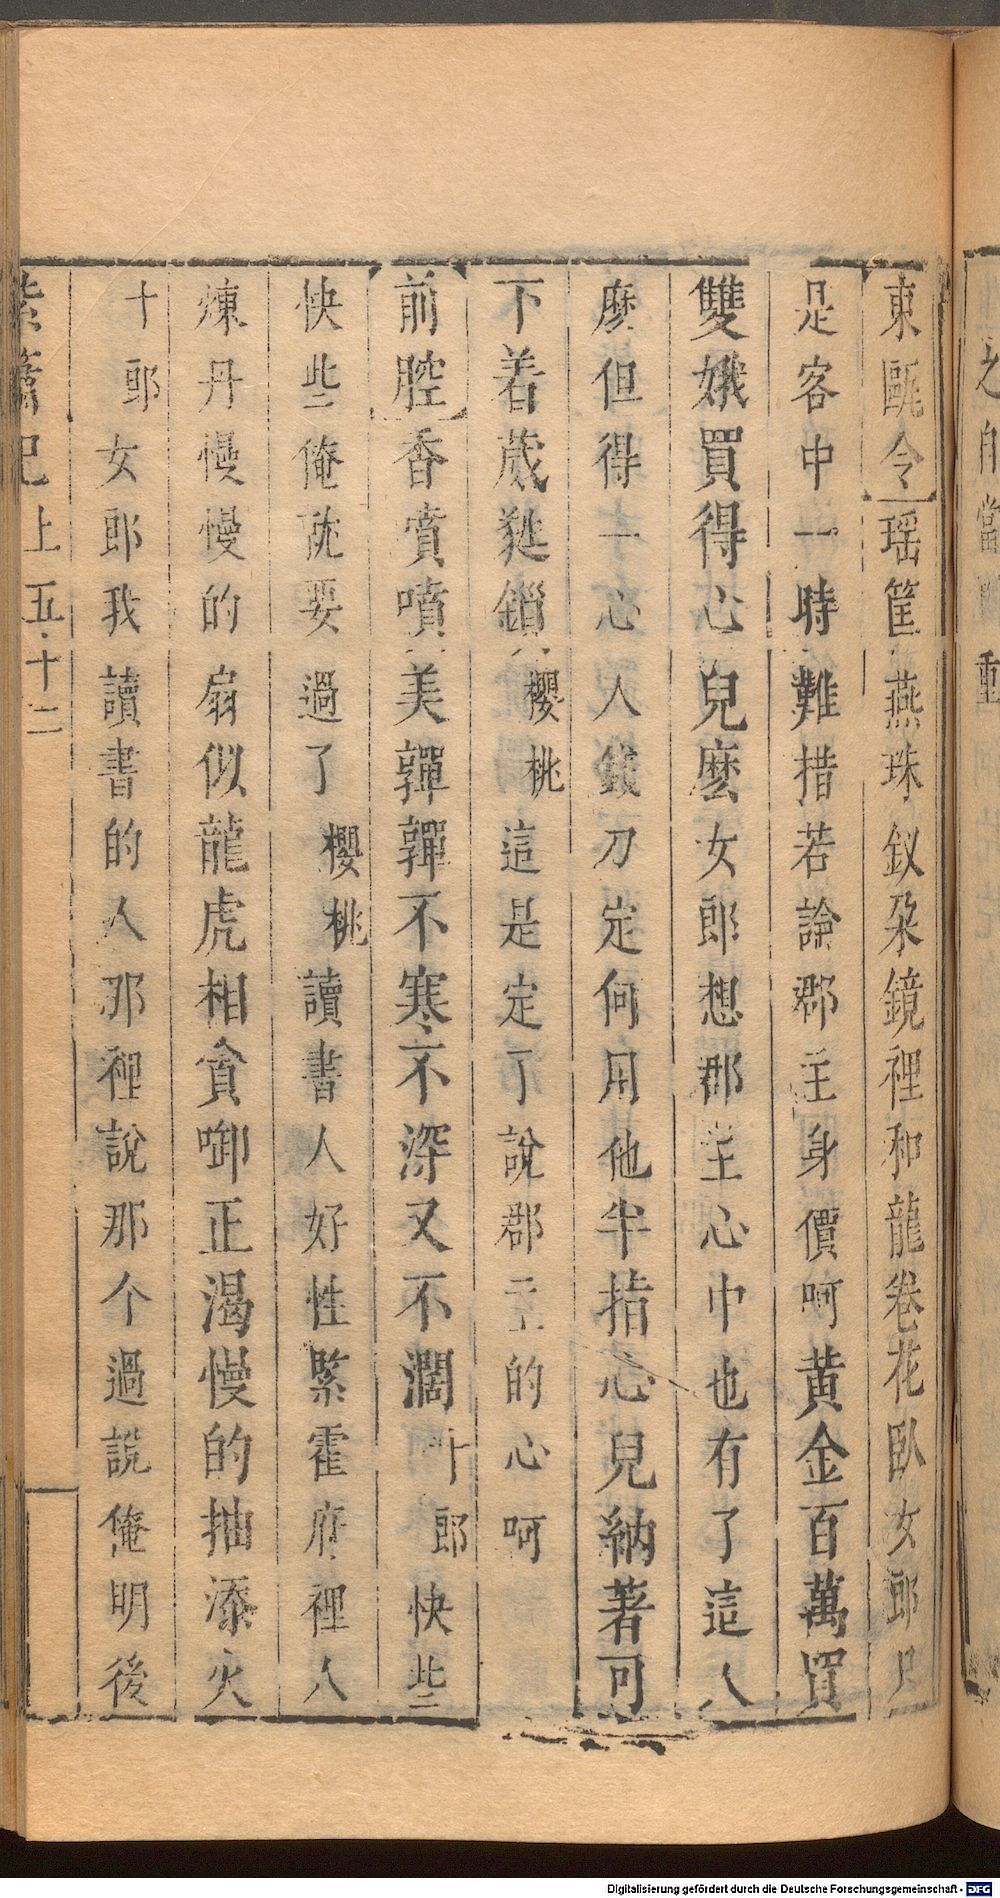 東甌令瑶筐燕珠釵朶鏡裡和龍卷花臥女郎只
是客中一時難措若論郡主身價呵黃金百萬買
雙娥買得心兒麽女郎想郡主心中也有了這人
麽但得一心人錢刀定何用他半指心兒納著可
下着葳蕤鎖櫻桃這是定了說郡主的心呵
前腔香噴噴美嚲嚲不寒不深又不濶十郎快些
快些俺就要過了櫻桃讀書人好性緊霍府裡人
煉丹慢慢的扇似龍虎相貪啣正渴慢的抽添火
十郎女郎我讀書的人那裡說那个過說俺明後
紫簫記上五十二
Digitalisierung gefördert durch die Deutsche Forschungsgemeinschaft - DFG